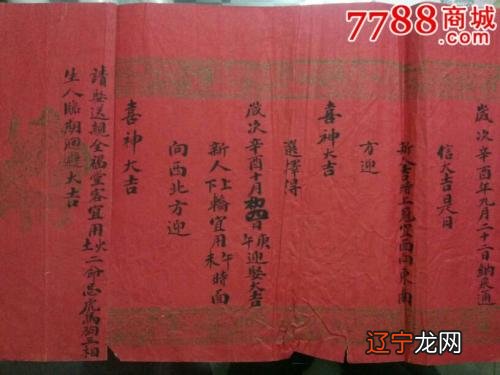 7788商城
歲次辛酉年九月二十二日納采通
信大吉是日
新人 上 面向東南
方迎
喜神大吉
選擇得
歲次辛酉十月初四日庚午迎娶大吉
新人上下輪宜用午未時面
向西北方迎
喜神大吉
請娶送親全福堂客宜用火土二命忌虎馬狗三相
生人臨期迴避大吉
辽宁龙网